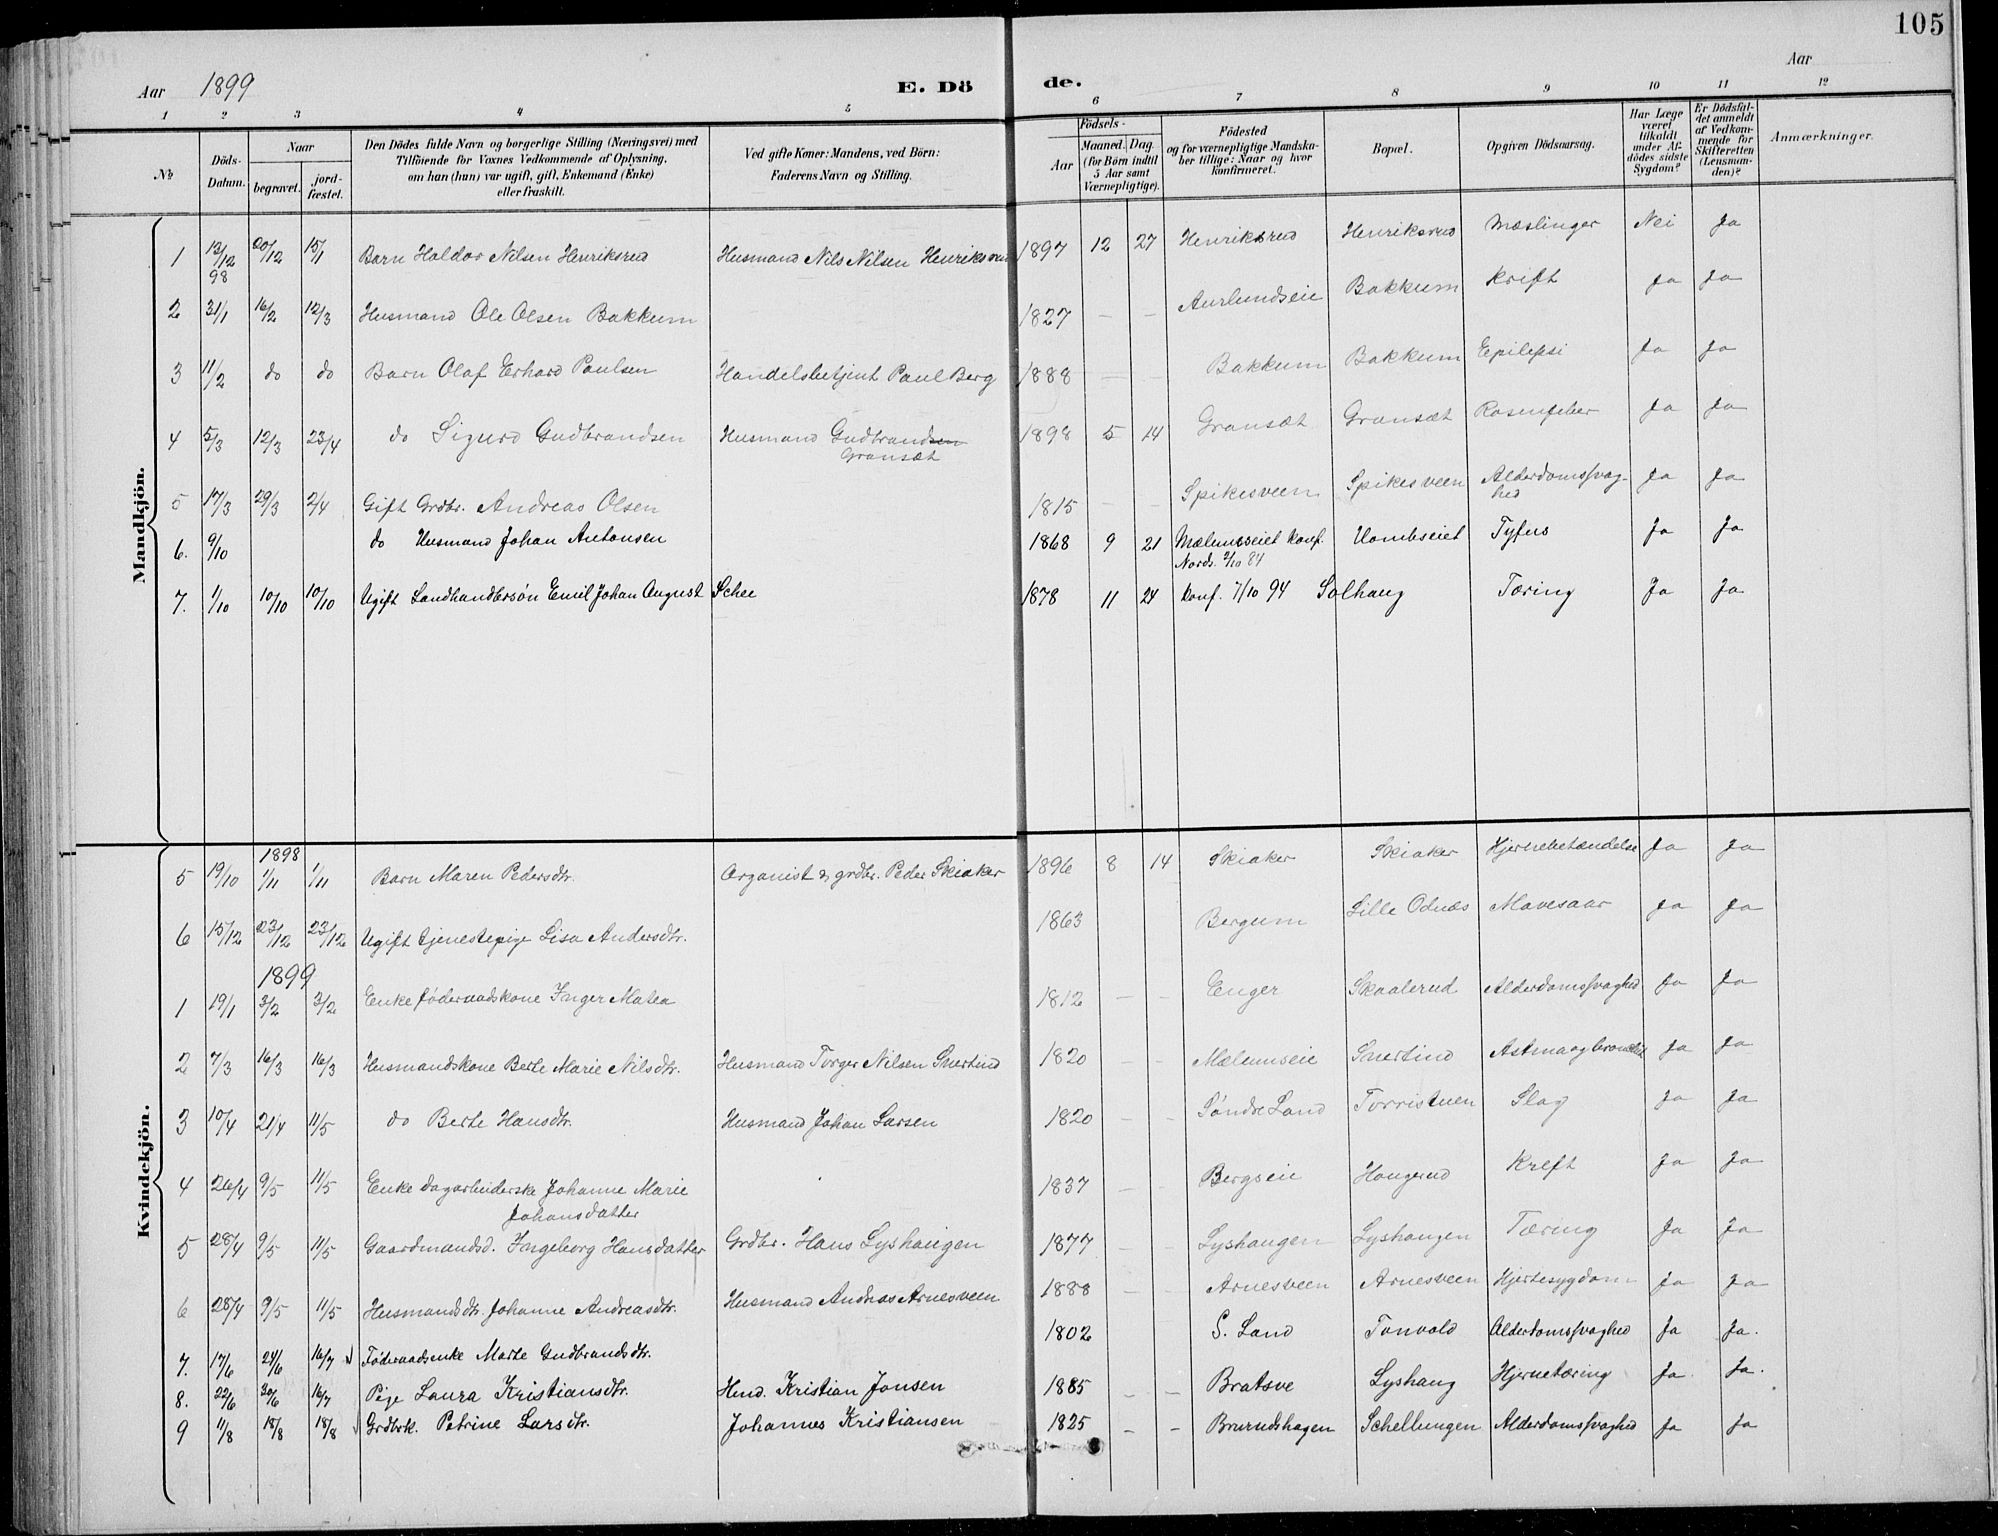 105
Aar 1899 E. Dö de. Aar
1 2 3 4 5 6 7 8 9 10 11 12
№ Döds-Datum. Naar begravet. jord-fæstet. Den Dödes fulde Navn og borgerlige Stilling (Næringsvei) med Tilföiende for Voxnes Vedkommende af Oplysning, om han (hun) var ugift, gift, Enkemand (Enke) eller fraskilt. Ved gifte Koner: Mandens, ved Börn: Faderens Navn og Stilling. Födsels- Aar Maaned. Dag. (for Børn indtil 5 Aar samt Værnepligtige). Födested og for værnepligtige Mandskaber tillige: Naar og hvor konfirmeret. Bopæl. Opgiven Dödsaarsag. Har Læge været tilkaldt under Afdödes sidste Sygdom? Er Dödsfaldet anmeldt af Vedkommende for Skifteretten (Lensmanden)? Anmærkninger.
Mandkjön.
1 13/12 98 20/12 15/1 Barn Haldor Nilsen Henriksrud Husmand Nils Nilsen Henriksrud 1897 12 27 Henriksrud Henriksrud Mæslinger Nei Ja
2 31/1 16/2 12/3 Husmand Ole Olsen Bakkum 1827 — — Aurlundseie Bakkum Krift Ja Ja
3 11/2 do do Barn Olaf Erhard Paulsen Handelsbetjent Paul Berg 1888 — — Bakkum Bakkum Epilepsi Ja Ja
4 5/3 12/3 23/4 do Sigurd Gudbrandsen Husmand Gudbrandsen Gransæt 1898 5 14 Gransæt Gransæt Rosenfeber Ja Ja
5 17/3 29/3 2/4 Gift Grdbr. Andreas Olsen 1815 — — Spikesveen Spikesveen Alderdomssvaghed Ja Ja
6. 9/10 do Husmand Johan Antonsen 1868 9 21 Mælumseiet konf. Nords. 2/10 84 Hombseiet Tyfus Ja Ja
7. 1/10 10/10 10/10 Ugift Landhandlersön Emil Johan August Schee 1878 11 24 konf. 7/10 94 Solhaug Tæring Ja Ja
Kvindekjön.
1898
5 19/10 1/11 1/11 Barn Maren Pedersdtr. Organist & grdbr. Peder Skiaker 1896 8 14 Skiaker Skiaker Hjernebetændelse Ja Ja
6 15/12 23/12 23/12 Ugift tjenestepige Lisa Andersdtr. 1863 Bergum Lille Odnæs Mavesaar Ja Ja
1899
1 19/1 3/2 3/2 Enke föderaadskone Inger Matea 1812 — — Enger Skaalerud Alderdomssvaghed Ja Ja
2 7/3 16/3 16/3 Husmandskone Berte Marie Nilsdtr. Husmand Torger Nilsen Snertind 1820 — — Mælumseie Snertind Astma og bronkit Ja Ja
3 10/4 21/4 11/5 do Berte Hansdtr. Husmand Johan Larsen 1820 — — Söndre Land Torristuen Slag Ja Ja
4 26/4 9/5 11/5 Enke dagarbeiderske Johanne Marie Johansdatter 1837 — — Bergseie Haugerud Kreft Ja Ja
5 28/4 9/5 11/5 Gaardmandsd. Ingeborg Hansdatter Grdbr. Hans Lyshaugen 1877 — — Lyshaugen Lyshaugen Tæring Ja Ja
6 28/4 9/5 11/5 Husmandsdtr. Johanne Andreasdtr. Husmand Andreas Arnesveen 1888 — — Arnesveen Arnesveen Hjertesygdom Ja Ja
7. 17/6 24/6 16/7 Föderaadsenke Marte Gudbrandsdtr. 1802 S. Land Tonvold Alderdomssvaghed Ja Ja.
8. 22/6 30/6 16/7 Pige Laura Kristiansdtr. Hmd. Kristian Jonsen 1885 — — Bratsve Lyshaug Hjernetæring Ja. Ja.
9 11/8 18/8 18/8 Grdbrk. Petrine Larsdtr. Johannes Kristiansen 1825 — — Brurudshagen Schellungen Alderdomssvaghed Ja Ja